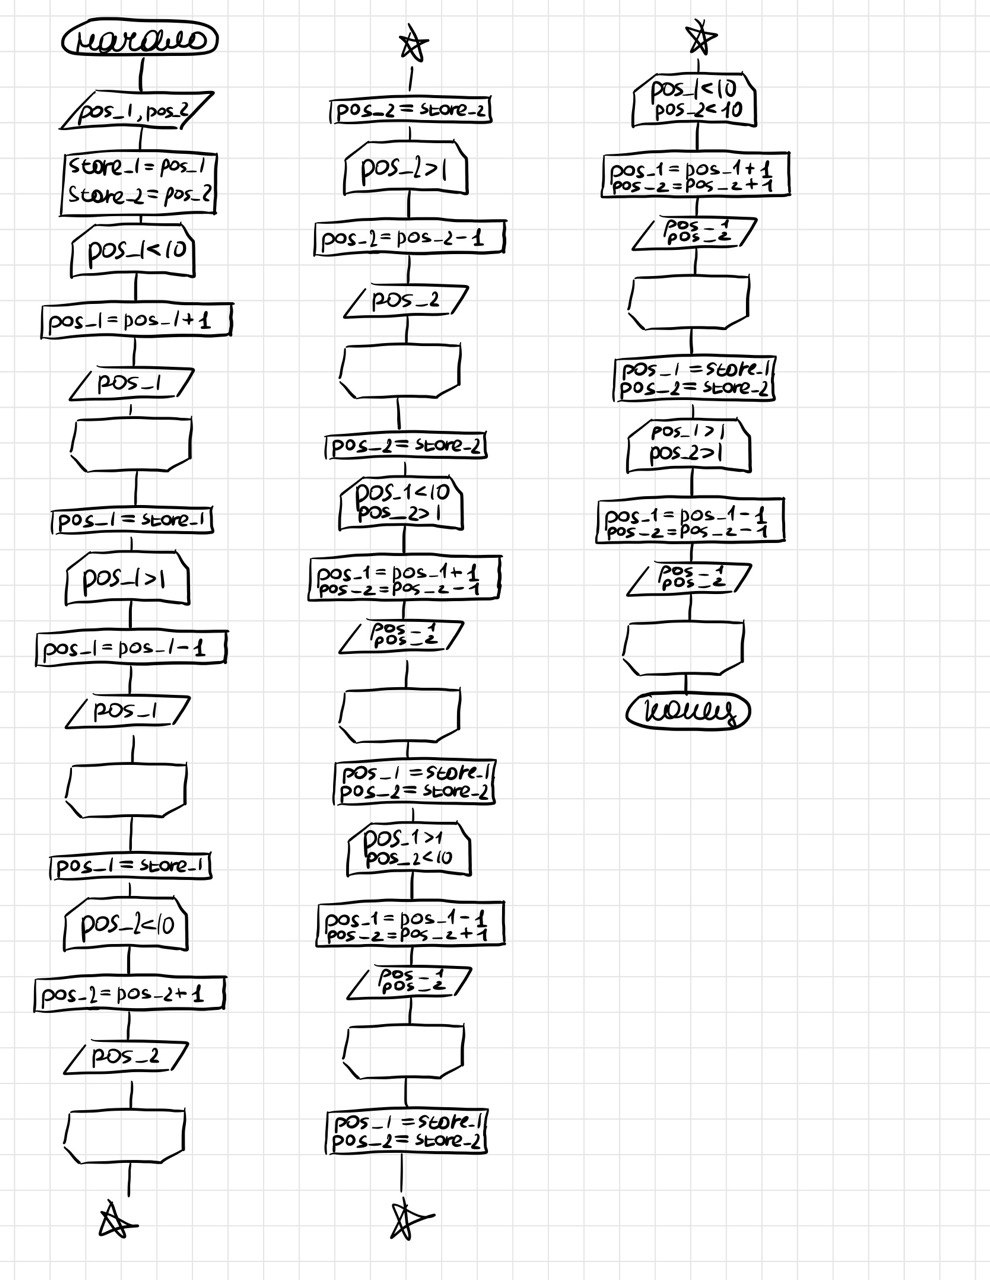 начало
pos_1, pos_2
store_1 = pos_1
store_2 = pos_2
pos_1<10
pos_1 = pos_1+1
pos_1
pos_1 = store_1
pos_1>1
pos_1 = pos_1-1
pos_1
pos_1 = store_1
pos_2<10
pos_2 = pos_2+1
pos_2
pos_2 = store_2
pos_2>1
pos_2 = pos_2-1
pos_2
pos_2 = store_2
pos_1<10
pos_2>1
pos_1 = pos_1+1
pos_2 = pos_2-1
pos_1
pos_2
pos_1 = store_1
pos_2 = store_2
pos_1>1
pos_2<10
pos_1 = pos_1-1
pos_2 = pos_2+1
pos_1
pos_2
pos_1 = store_1
pos_2 = store_2
pos_1<10
pos_2<10
pos_1 = pos_1+1
pos_2 = pos_2+1
pos_1
pos_2
pos_1 = store_1
pos_2 = store_2
pos_1>1
pos_2>1
pos_1 = pos_1-1
pos_2 = pos_2-1
pos_1
pos_2
конец